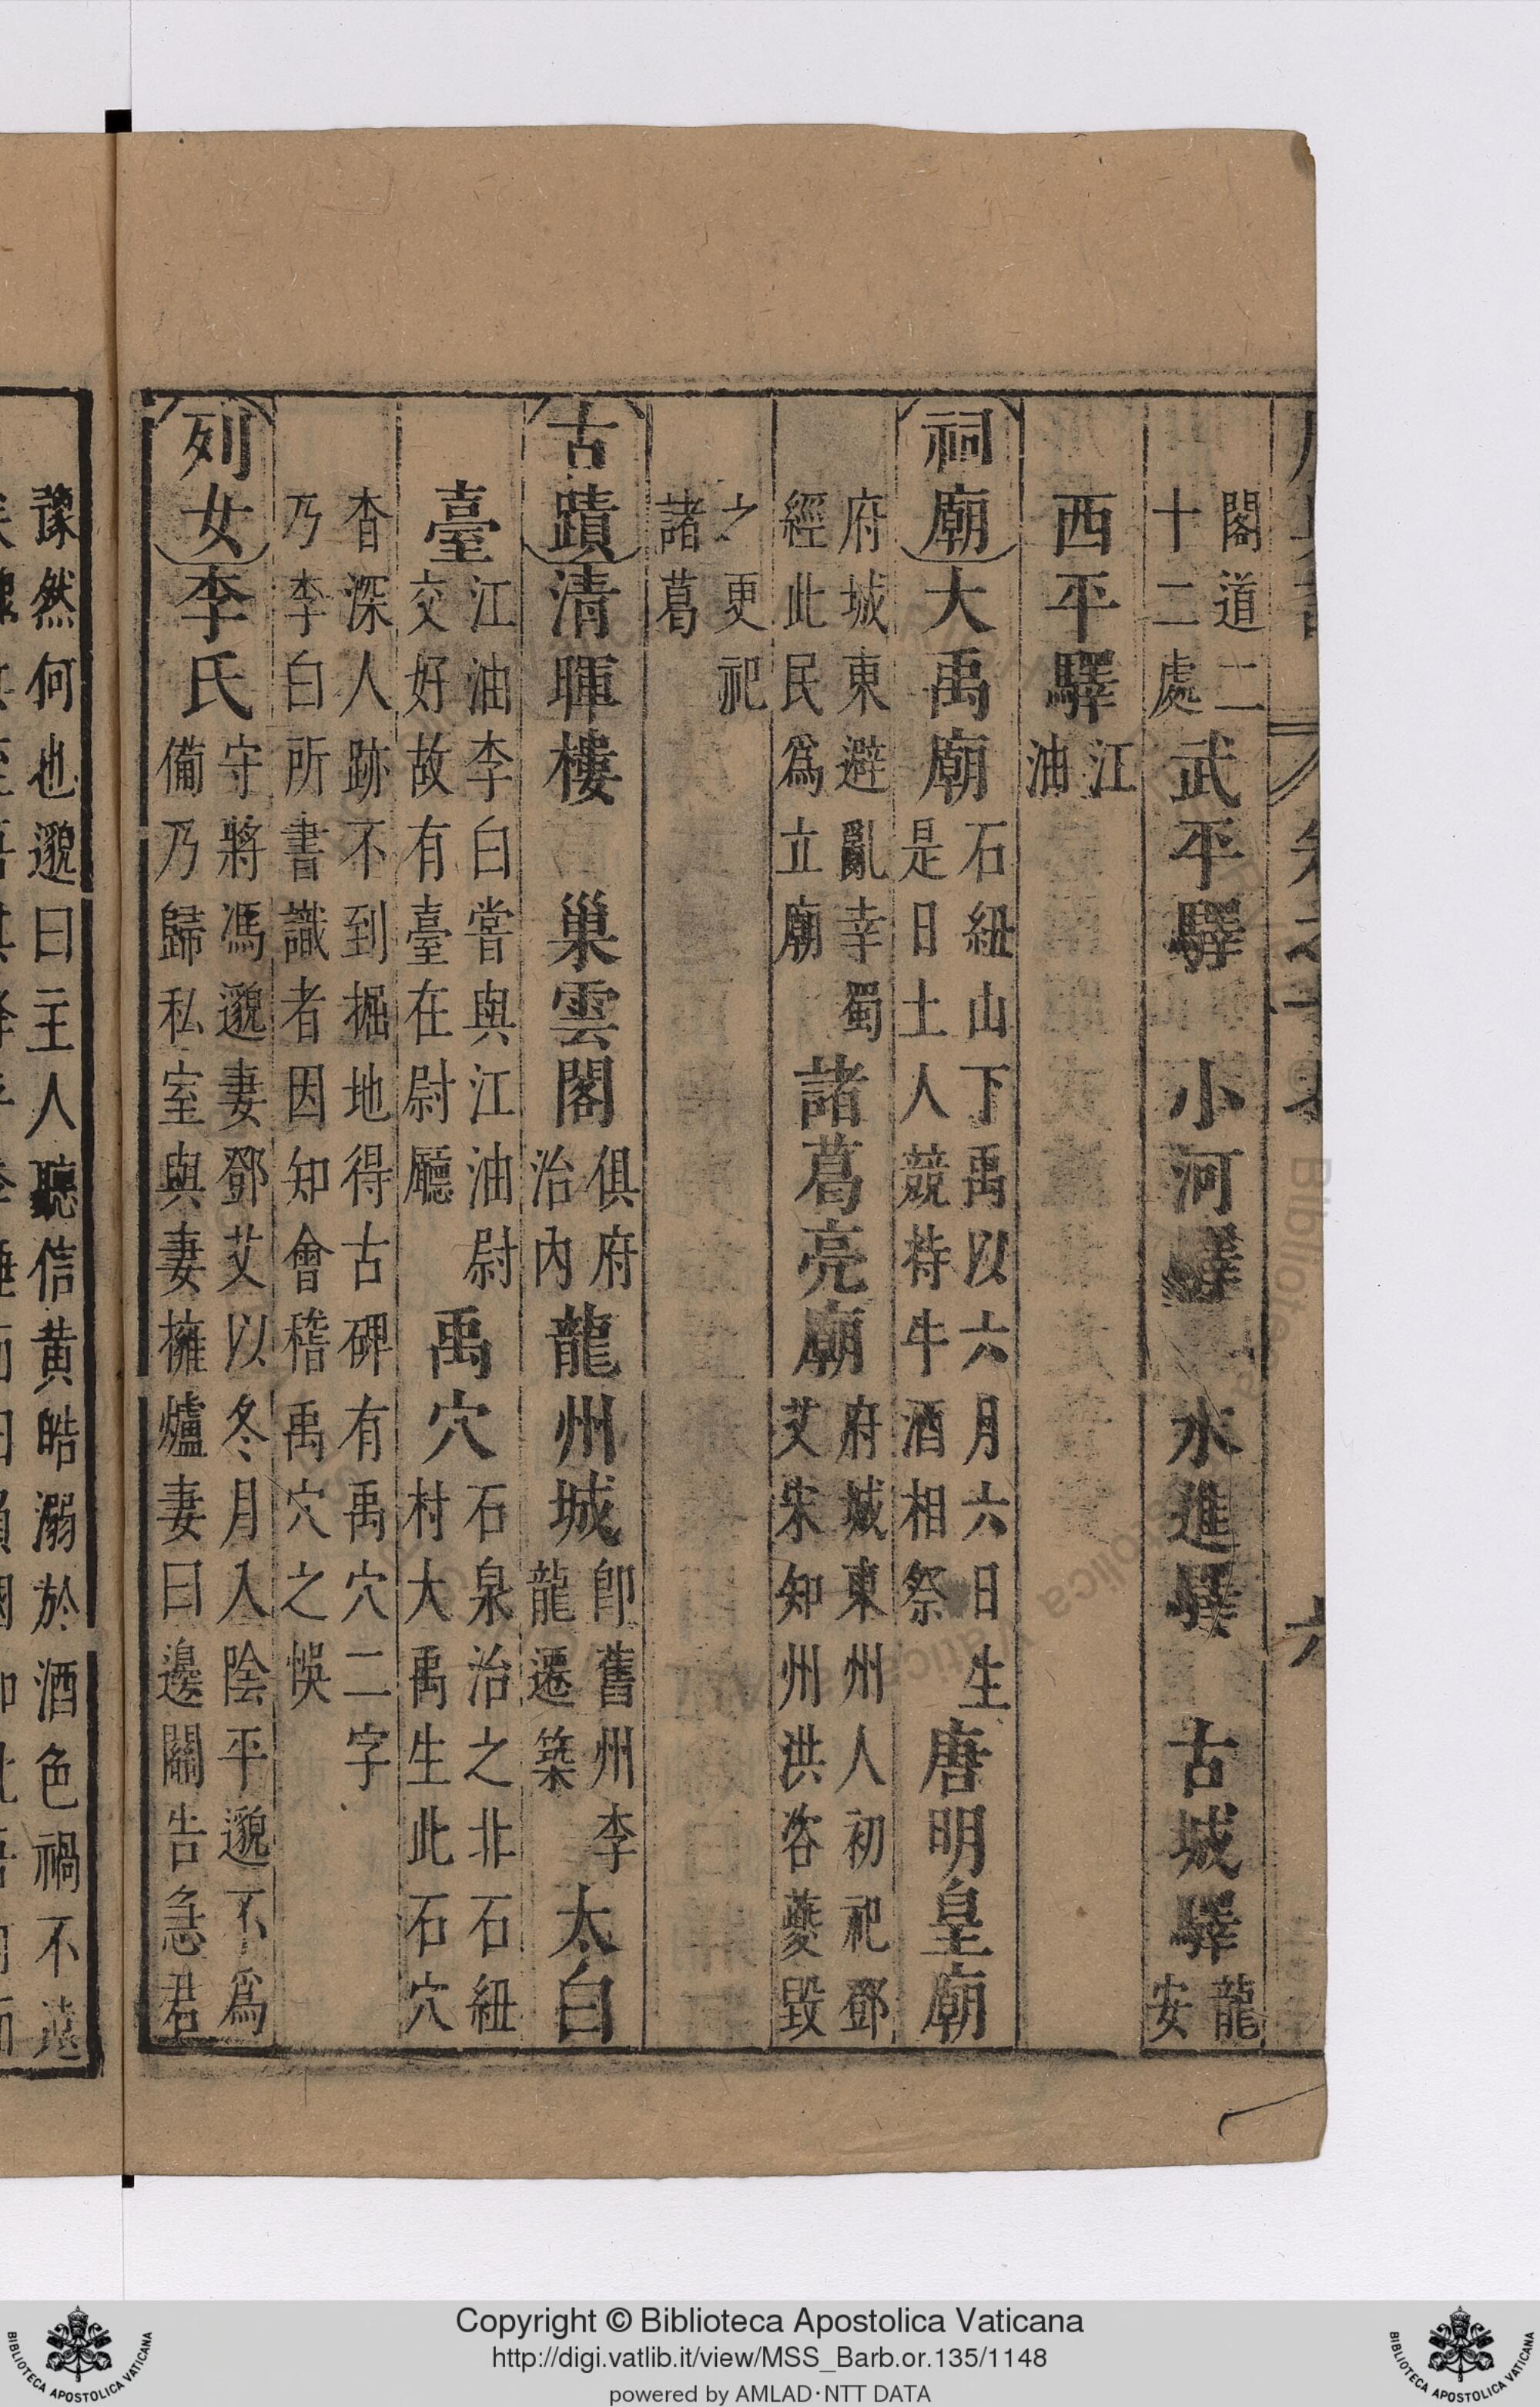 閣道二
十二處
武平驛 小河驛 水進驛 古城驛
龍
安
西平驛
江
油
祠廟 大禹廟
石紐山下禹以六月六日生
是日土人競持牛酒相祭
唐明皇廟
府城東避亂幸蜀
經此民為立廟
諸葛亮廟
府城東州人初祀鄧
艾宋知州洪咨夔毀
之更祀
諸葛
古蹟 清暉樓 巢雲閣
俱府
治內
龍州城
即舊州李
龍遷築
太白
臺
江油李白嘗與江油尉
交好故有臺在尉廳
禹穴
石泉治之北石紐
村大禹生此石穴
杳深人跡不到掘地得古碑有禹穴二字
乃李白所書識者因知會稽禹穴之悞
列女 李氏
守將馮邈妻鄧艾以冬月入陰平邈不爲
備乃歸私室與妻擁爐妻曰邊關告急君
豫然何也邈曰主人聽信黃皓溺於酒色禍不遠
Copyright © Biblioteca Apostolica Vaticana
http://digi.vatlib.it/view/MSS_Barb.or.135/1148
powered by AMLAD·NTT DATA
BIBLIOTECA APOSTOLICA VATICANA
BIBLIOTECA APOSTOLICA VATICANA